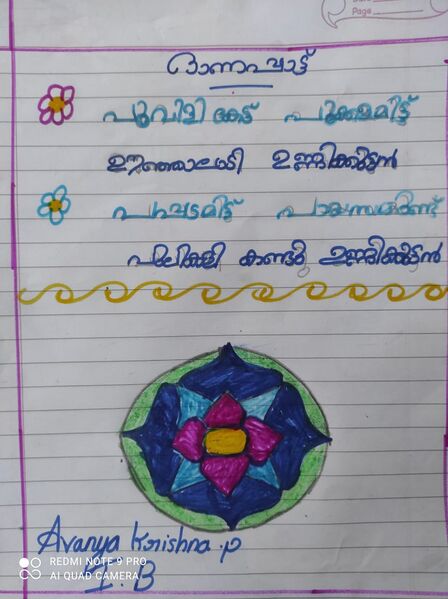 Page
ഓണപ്പാട്ട്
പൂവിളി കേട്ട് പൂക്കളമിട്ട്
ഊഞ്ഞാലാടി ഉണ്ണിക്കുട്ടൻ
പപ്പടമിട്ട് പായസമുണ്ട്
പുലിക്കളി കാണും ഉണ്ണിക്കുട്ടൻ
Avanya Krishna .p
I. B
REDMI NOTE 9 PRO
AI QUAD CAMERA